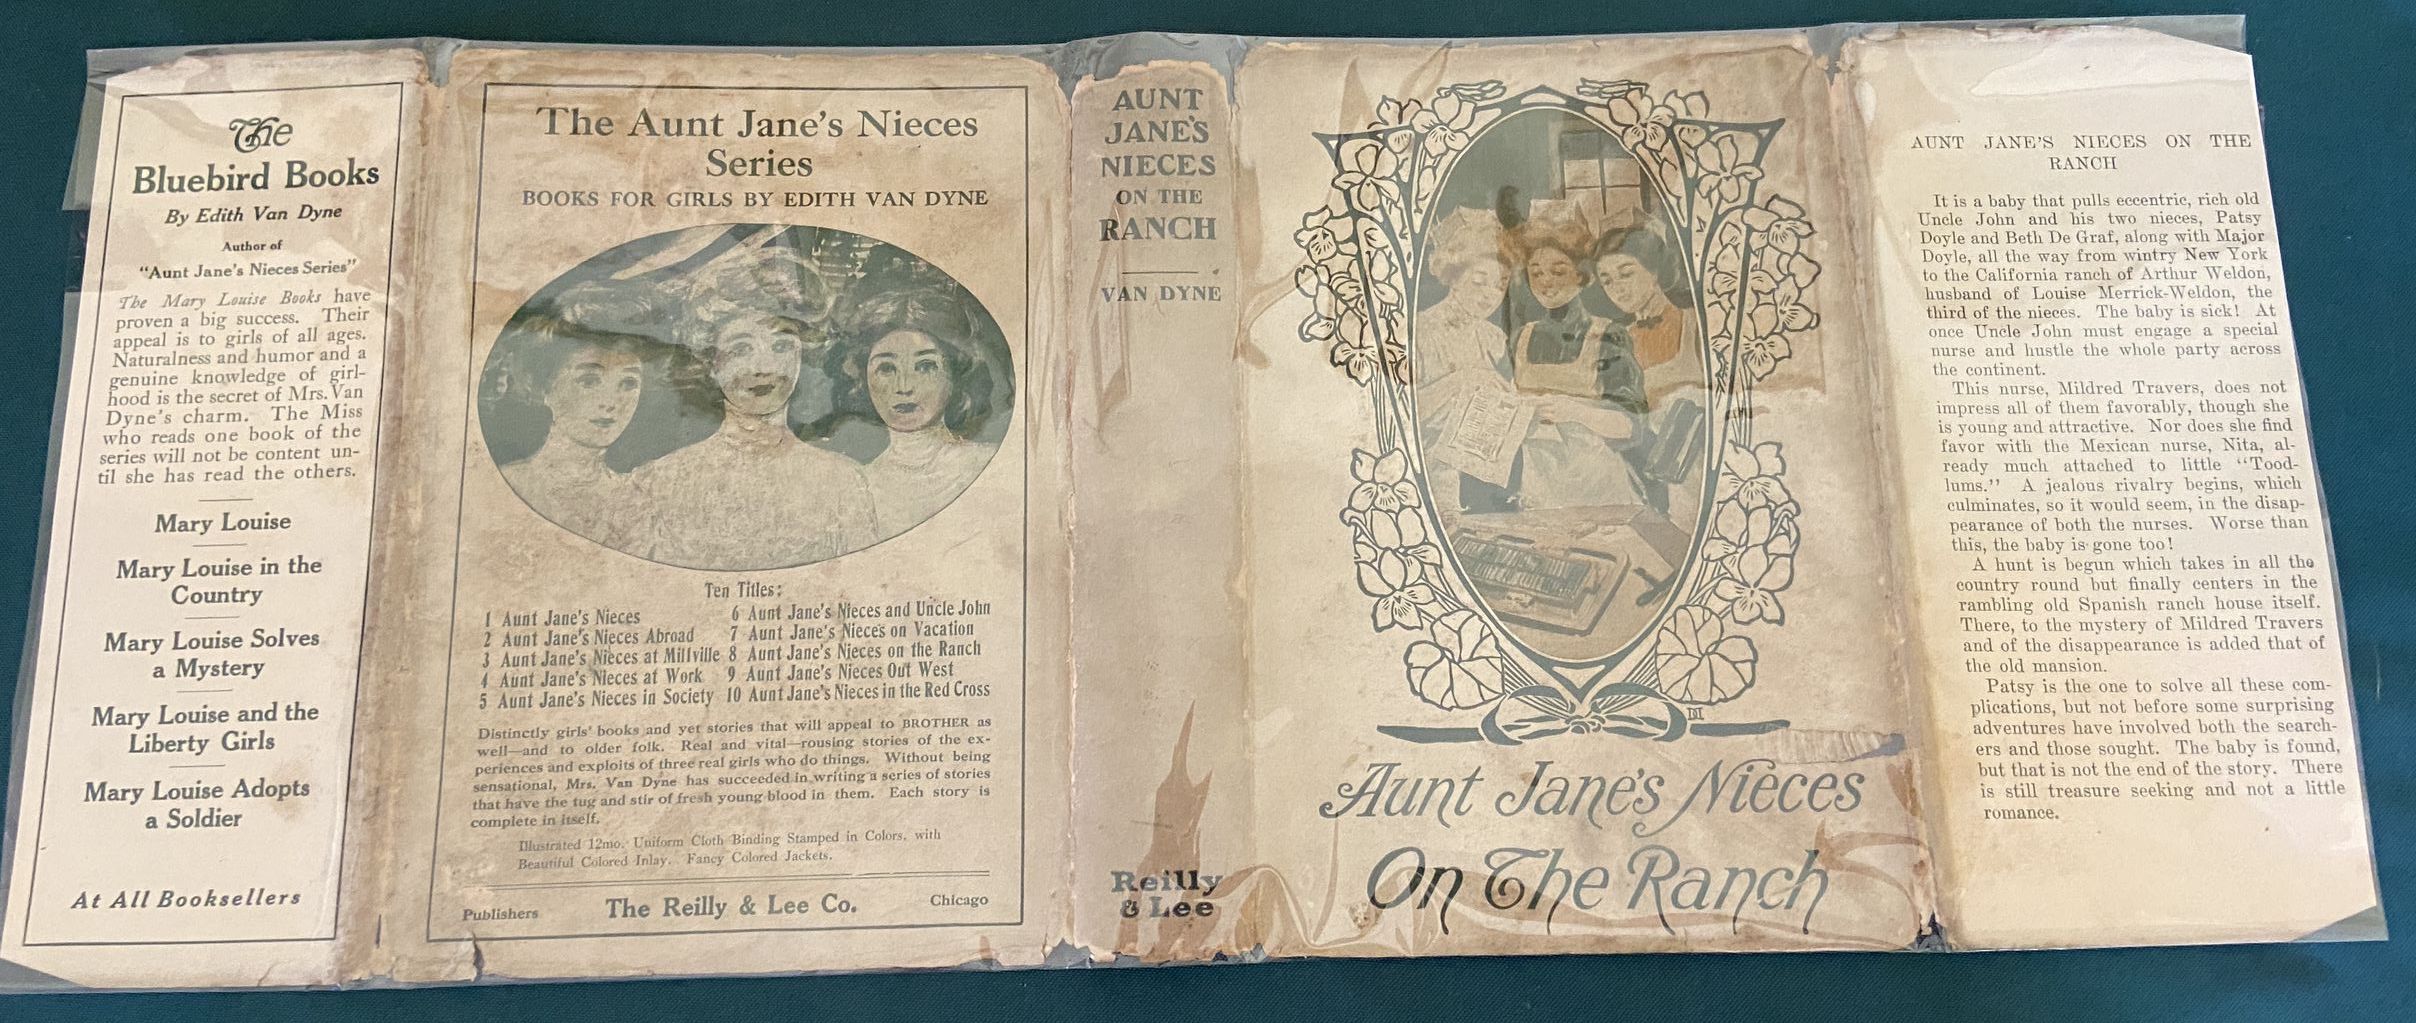 The
Bluebird Books
By Edith Van Dyne
Author of
"Aunt Jane's Nieces Series"
The Mary Louise Books have
proven a big success. Their
appeal is to girls of all ages.
Naturalness and humor and a
genuine knowledge of girl-
hood is the secret of Mrs. Van
Dyne's charm. The Miss
who reads one book of the
series will not be content un-
til she has read the others.
Mary Louise
Mary Louise in the
Country
Mary Louise Solves
a Mystery
Mary Louise and the
Liberty Girls
Mary Louise Adopts
a Soldier
At All Booksellers
The Aunt Jane's Nieces
Series
BOOKS FOR GIRLS BY EDITH VAN DYNE
Ten Titles:
1 Aunt Jane's Nieces
2 Aunt Jane's Nieces Abroad
3 Aunt Jane's Nieces at Millville
4 Aunt Jane's Nieces at Work
5 Aunt Jane's Nieces in Society
6 Aunt Jane's Nieces and Uncle John
7 Aunt Jane's Nieces on Vacation
8 Aunt Jane's Nieces on the Ranch
9 Aunt Jane's Nieces Out West
10 Aunt Jane's Nieces in the Red Cross
Distinctly girls' books and yet stories that will appeal to BROTHER as
well—and to older folk. Real and vital—rousing stories of the ex-
periences and exploits of three real girls who do things. Without being
sensational, Mrs. Van Dyne has succeeded in writing a series of stories
that have the tug and stir of fresh young blood in them. Each story is
complete in itself.
Illustrated 12mo. Uniform Cloth Binding Stamped in Colors, with
Beautiful Colored Inlay. Fancy Colored Jackets.
Publishers The Reilly & Lee Co. Chicago
AUNT
JANE'S
NIECES
ON THE
RANCH
VAN DYNE
Reilly
& Lee
Aunt Jane's Nieces
On The Ranch
AUNT JANE'S NIECES ON THE
RANCH
It is a baby that pulls eccentric, rich old
Uncle John and his two nieces, Patsy
Doyle and Beth De Graf, along with Major
Doyle, all the way from wintry New York
to the California ranch of Arthur Weldon,
husband of Louise Merrick-Weldon, the
third of the nieces. The baby is sick! At
once Uncle John must engage a special
nurse and hustle the whole party across
the continent.
This nurse, Mildred Travers, does not
impress all of them favorably, though she
is young and attractive. Nor does she find
favor with the Mexican nurse, Nita, al-
ready much attached to little "Tood-
lums." A jealous rivalry begins, which
culminates, so it would seem, in the disap-
pearance of both the nurses. Worse than
this, the baby is gone too!
A hunt is begun which takes in all the
country round but finally centers in the
rambling old Spanish ranch house itself.
There, to the mystery of Mildred Travers
and of the disappearance is added that of
the old mansion.
Patsy is the one to solve all these com-
plications, but not before some surprising
adventures have involved both the search-
ers and those sought. The baby is found,
but that is not the end of the story. There
is still treasure seeking and not a little
romance.